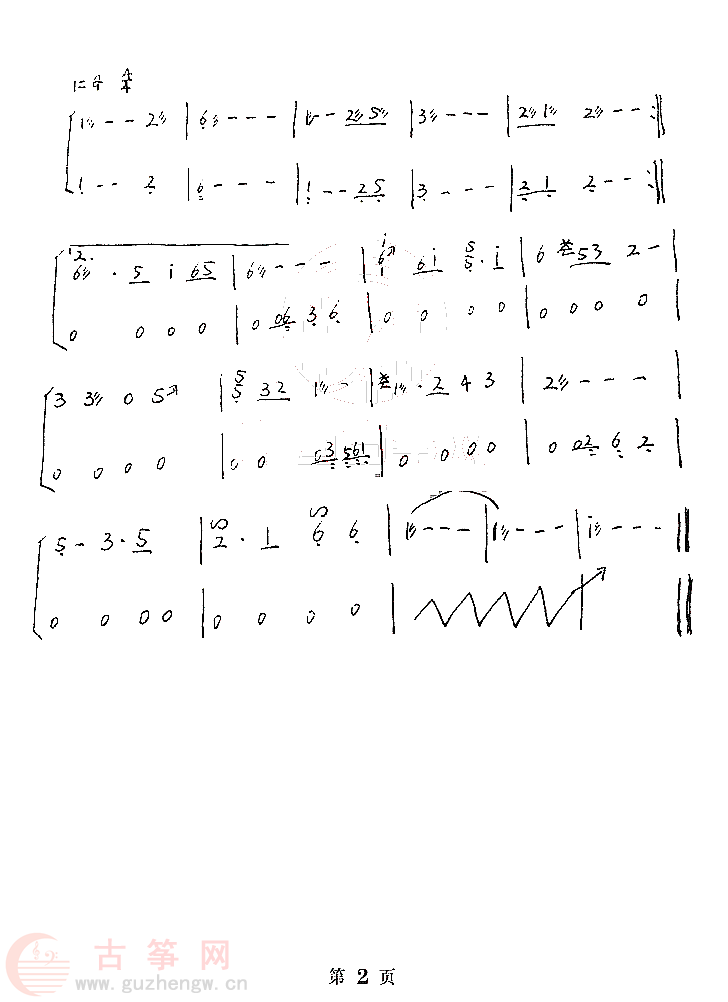 1̣⫽ - - 2⫽ | 6̣⫽ - - - | 1⫽ - 2⫽5⫽ | 3⫽ - - - | 2⫽1⫽ 2⫽ - - :‖
1̣ - - 2̣ | 6̣ - - - | 1̣ - - 2̣5̣ | 3̣ - - - | 2̣1̣ 2̣ - - :‖
12.
6⫽ · 5 i 65 | 6⫽ - - - | 6i 5 · i | 6 53 2 - |
0 0 0 0 | 0 06̣ 3̣ 6̣ | 0 0 0 0 | 0 0 0 0 |
3 3⫽ 0 5↗ | 5 32 1⫽ - | 1⫽ · 2 4 3 | 2⫽ - - - |
0 0 0 0 | 0 0 03 561 | 0 0 0 0 | 0 02̣ 6̣ 2̣ |
5̣ - 3 · 5 | 2̣ · 1 6̣ 6̣ | 1⫽ - - - | 1⫽ - - - | i⫽ - - - ‖
0 0 0 0 | 0 0 0 0 |
古筝网
www.guzhengw.cn
第 2 页